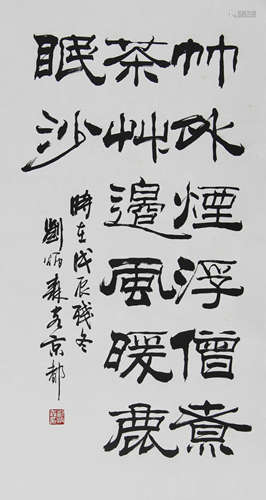 竹外煙浮僧煮
茶艸邊風暖鹿
眠沙
時在戊辰殘冬
劉炳森書京都